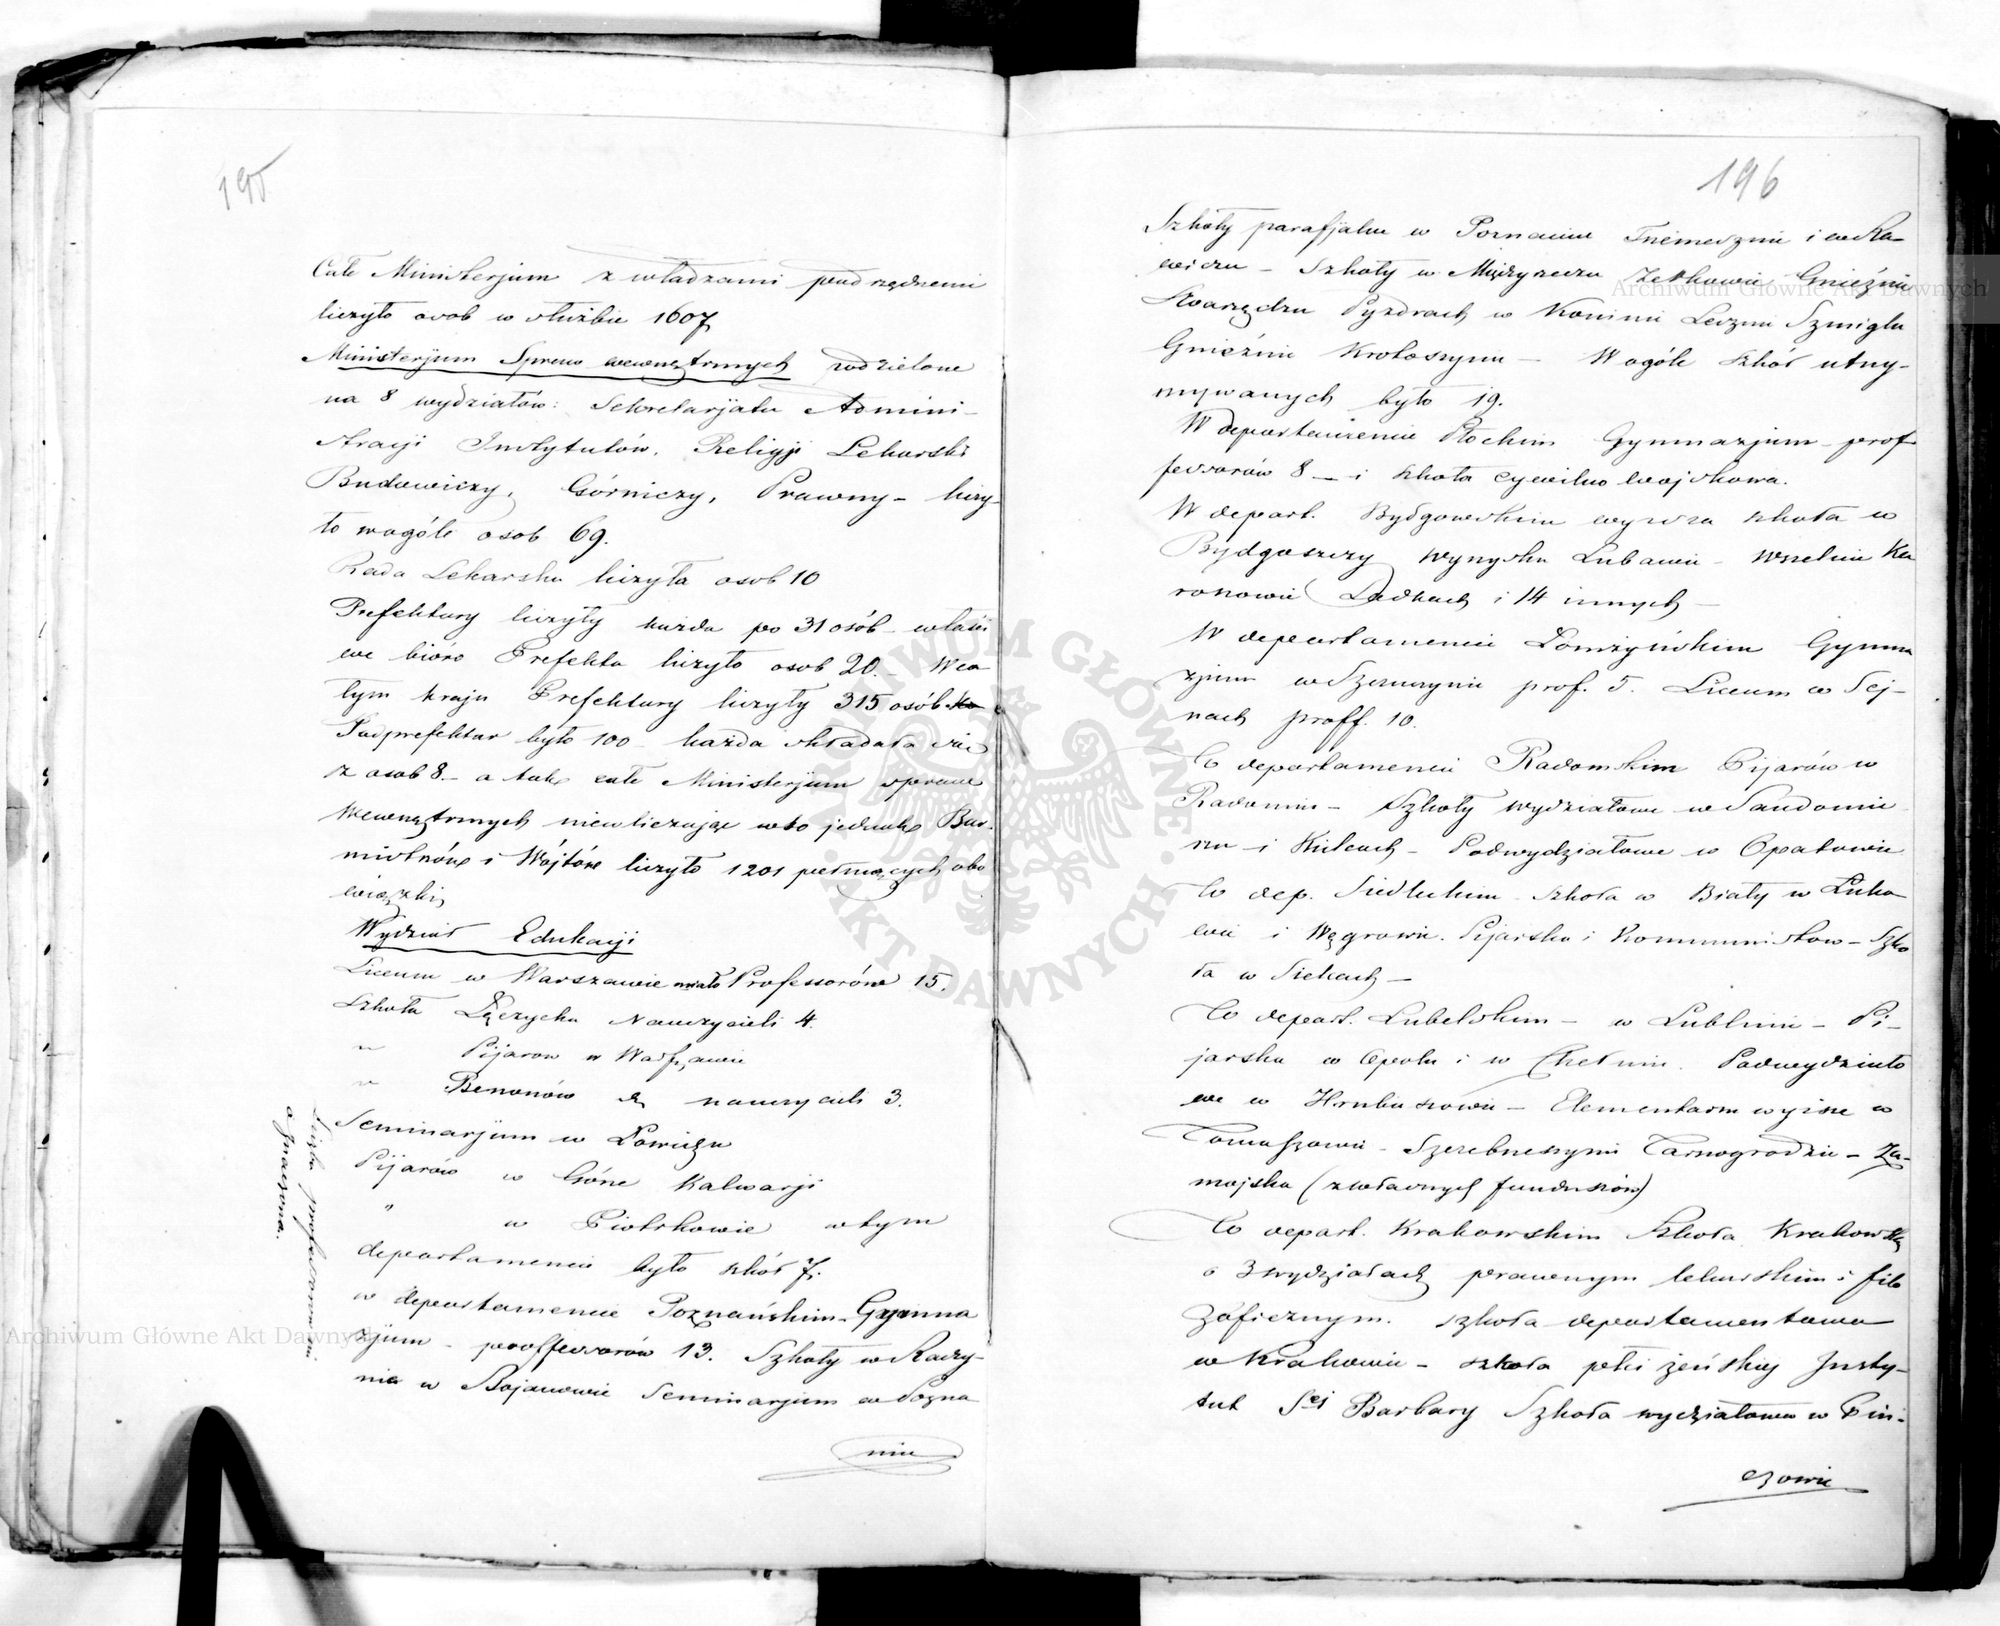 195
Całe Ministerjum z władzami pod rzędnemi
liczyło osob w służbie 1607
Ministerjum Spraw wewnętrznych podzielone
na 8 wydziałów: Sekretarjatu Admini-
stracji Instytutów. Religji Lekarski
Budowniczy, Górniczy, Prawny - liczy-
ło wogóle osob 69.
Rada Lekarska liczyła osob 10
Prefektury liczyły każda po 31 osób - właści
we bióro Prefekta liczyło osob 20. - W ca
łym kraju Prefektury liczyły 315 osób
Podprefektur było 100 - każda składała się
z osob 8. - a tak całe Ministerjum spraw
Wewnętrznych niewliczając w to jednak Bur-
mistrzów i Wójtów liczyło 1201 pełniących obo
wiązki
Wydział Edukacji
Liceum w Warszawie miało Professorów 15.
Szkoła Łęczycka Nauczycieli 4.
" Pijarow w Warszawie
" Benonów nauczycieli 3.
Seminarjum w Łowiczu
Pijarów w Górze Kalwarji
" w Piotrkowie w tym
departamencie było szkół 7.
w departamencie Poznańskim - Gymna
zjum - proffessorów 13. Szkoły w Radzy-
nie w Bojanowie Seminarjum w Pozna
niu
Liczba professorów
o
196
Szkoły parafjalne w Poznaniu Trzemesznie i w Ra-
wiczu - Szkoły w Międzyrzeczu Zerkowie, Gnieźnie
Swarzędzu Pyzdrach w Koninie Lesznie Szmiglu
Gnieźnie Krotoszynie - W ogóle szkół utrzy-
mywanych było 19.
W departamencie Płockim Gymnazjum - prof
fessorów 8 - i szkoła cywilno wojskowa.
W depart. Bydgowskim wyższa szkoła w
Bydgoszczy Wyrzysku Lubawie - Wszelnie Ko
ronowie i 14 innych -
W departamencie Łomżyńskim Gymna
zjum w Szczuczynie prof. 5. Liceum w Sej-
nach proff. 10.
W departamencie Radomskim Pijarów w
Radomiu - Szkoły wydziałowe w Sandomie
rzu - i Kielcach - Podwydziałowe w Opatowie
W dep. Siedleckim szkoła w Biały w Łuko
wie i Węgrowie. Pijarska i Kommunistow - Szko
ła w Siekach -
W depart. Lubelskim - w Lublinie - Pi-
jarska w Opolu i w Chełmie. Podwydziało
we w Hrubieszowie - Elementarne wyższe w
Tomaszowie - Szczebrzeszynie Tarnogrodzie - Za-
mojska (z własnych funduszów)
W depart. Krakowskim Szkoła Krakowska
o 3 wydziałach prawnym lekarskim i filo
zoficznym. szkoła departamentowa
w Krakowie - szkoła płci żeńskiej Insty-
tut Sej Barbary Szkoła wydziałowa w Piń-
czowie
Archiwum Główne Akt Dawnych
Archiwum Główne Akt Dawnych
ARCHIWUM GŁÓWNE AKT DAWNYCH